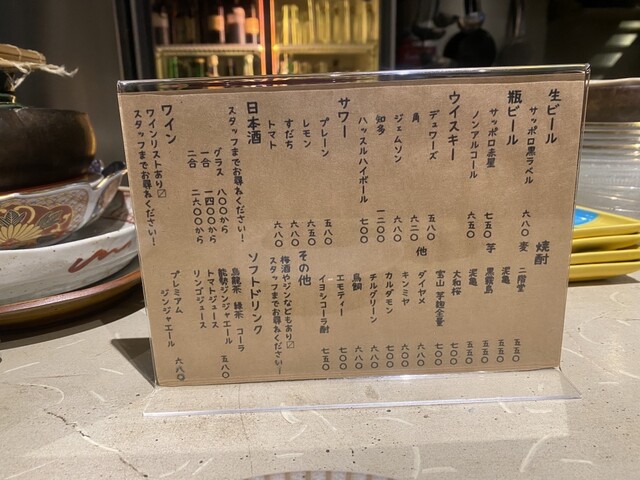 生ビール
サッポロ黒ラベル 六八〇
瓶ビール
サッポロ赤星 七五〇
ノンアルコール 六五〇
ウイスキー
デュワーズ 五八〇
角 六二〇
ジェムソン 六八〇
知多 一二〇〇
ハッスルハイボール 七〇〇
サワー
プレーン 五八〇
レモン 六五〇
すだち 六八〇
トマト 六八〇
日本酒
スタッフまでお尋ねください!
グラス 八〇〇から
一合 一四〇〇から
二合 二六〇〇から
ワイン
ワインリストあり〼
スタッフまでお尋ねください!
焼酎
麦 二階堂 五五〇
泥亀 五五〇
芋 黒霧島 五五〇
泥亀 五五〇
大和桜 七〇〇
宮山 芋麹全量 七〇〇
他 ダイヤメ 六八〇
キンミヤ 六〇〇
カルダモン 七〇〇
チルグリーン 六八〇
鳥飼 七〇〇
エモティー 七〇〇
イヨシコーラ酎 七五〇
その他
梅酒やジンなどもあり〼
スタッフまでお尋ねください!
ソフトドリンク
烏龍茶 緑茶 コーラ
能勢ジンジャエール
トマトジュース
リンゴジュース 五八〇
プレミアム
ジンジャエール 六八〇